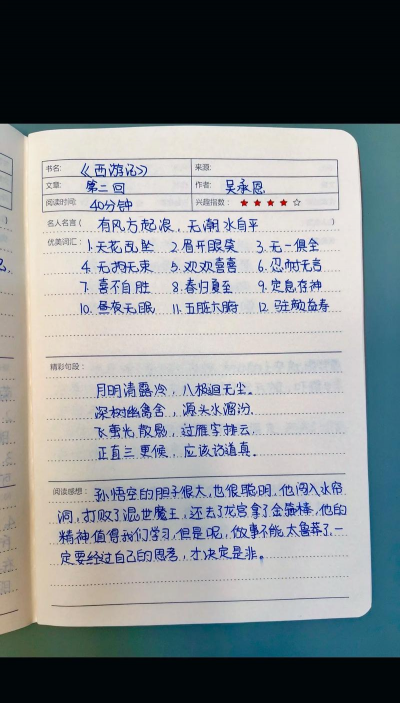 书名: 《西游记》 来源:
文章: 第二回 作者: 吴承恩
阅读时间: 40分钟 兴趣指数: ★★★★☆
名人名言( 有风方起浪，无潮水自平 )
优美词汇: 1.天花乱坠 2.眉开眼笑 3.无一俱全
4.无拘无束 5.欢欢喜喜 6.忍耐无言
7.喜不自胜 8.春归夏至 9.定息存神
10.昼夜无眠 11.五脏六腑 12.驻颜益寿
精彩句段:
月明清露冷，八极迥无尘。
深树幽禽宿，源头水溜汾.
飞萤光散影，过雁字排云.
正直三更候，应该访道真.
阅读感想: 孙悟空的胆子很大,也很聪明，他闯入水帘
洞，打败了混世魔王，还去了龙宫拿了金箍棒，他的
精神值得我们学习，但是呢，做事不能太鲁莽了.一
定要经过自己的思考，才决定是非。